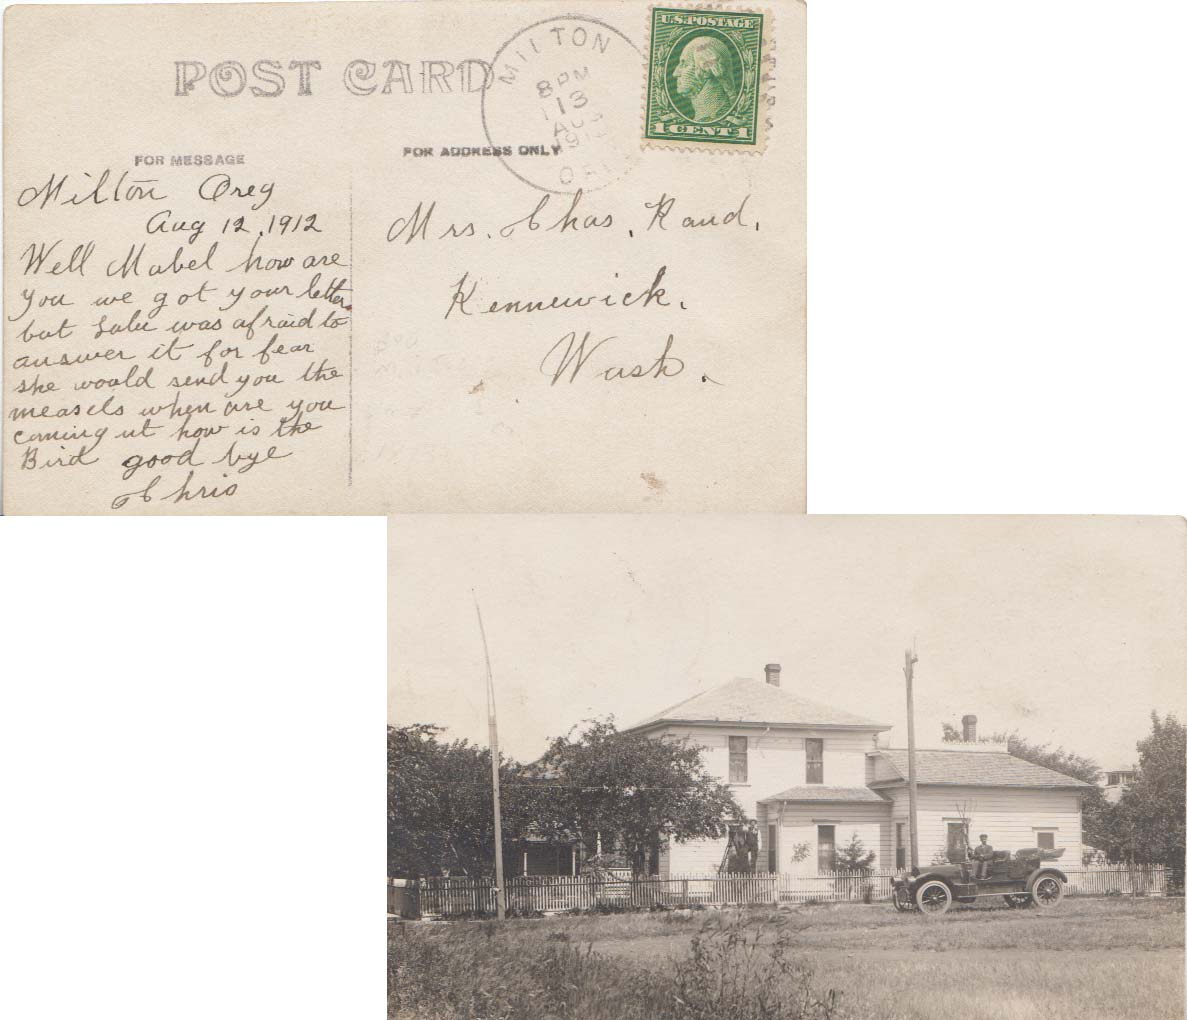 POST CARD
MILTON
8 PM
13
AUG
19
ORE
U.S. POSTAGE
1 CENT 1
FOR MESSAGE
FOR ADDRESS ONLY
Milton Oreg
Aug 12, 1912
Well Mabel how are
you we got your letter
but Lulu was afraid to
answer it for fear
she would send you the
measels when are you
coming ut how is the
Bird good bye
Chris
Mrs. Chas. Rand.
Kennewick.
Wash.